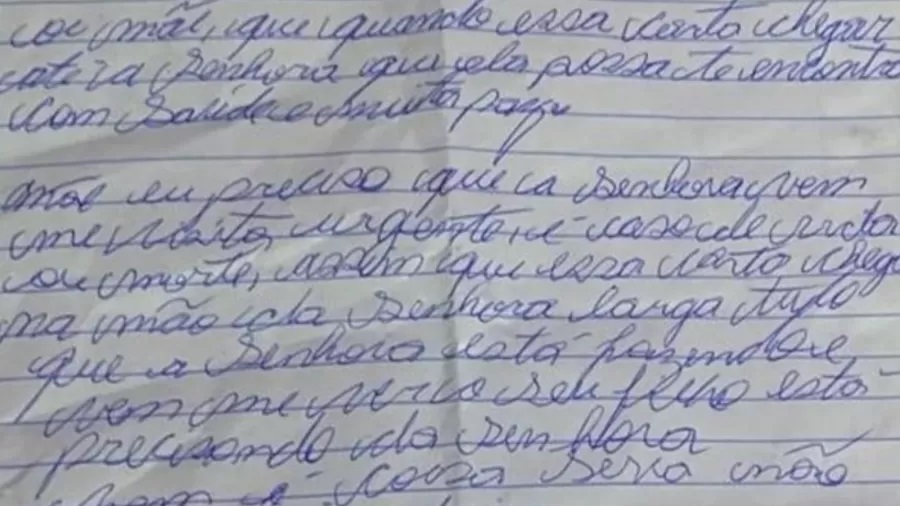 oi mãe, que quando essa carta chegar
ate a Senhora que ela possa te encontra
com Saúde e muita paz
mãe eu preciso que a Senhora vem
me visita, urgente, é caso de vida
ou morte, assim que essa carta chega
na mão da Senhora larga tudo
que a Senhora está fazendo e
vem me ver o seu filho está
precisando da Senhora
é coisa seria mãe